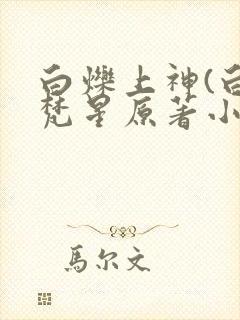 白爍上神(白
梵星原著小
馬尔文